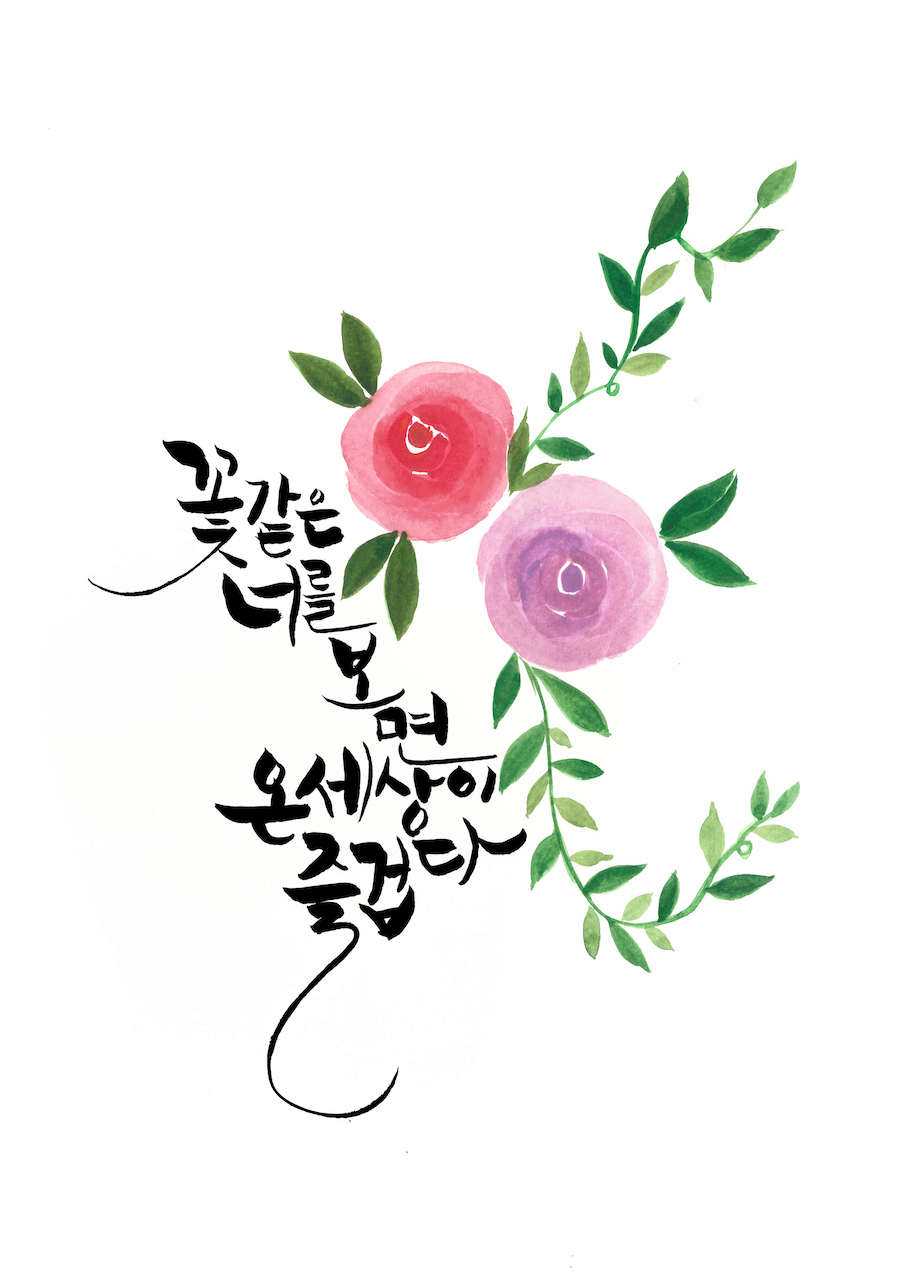 꽃같은
너를
보면
온세상이
즐겁다